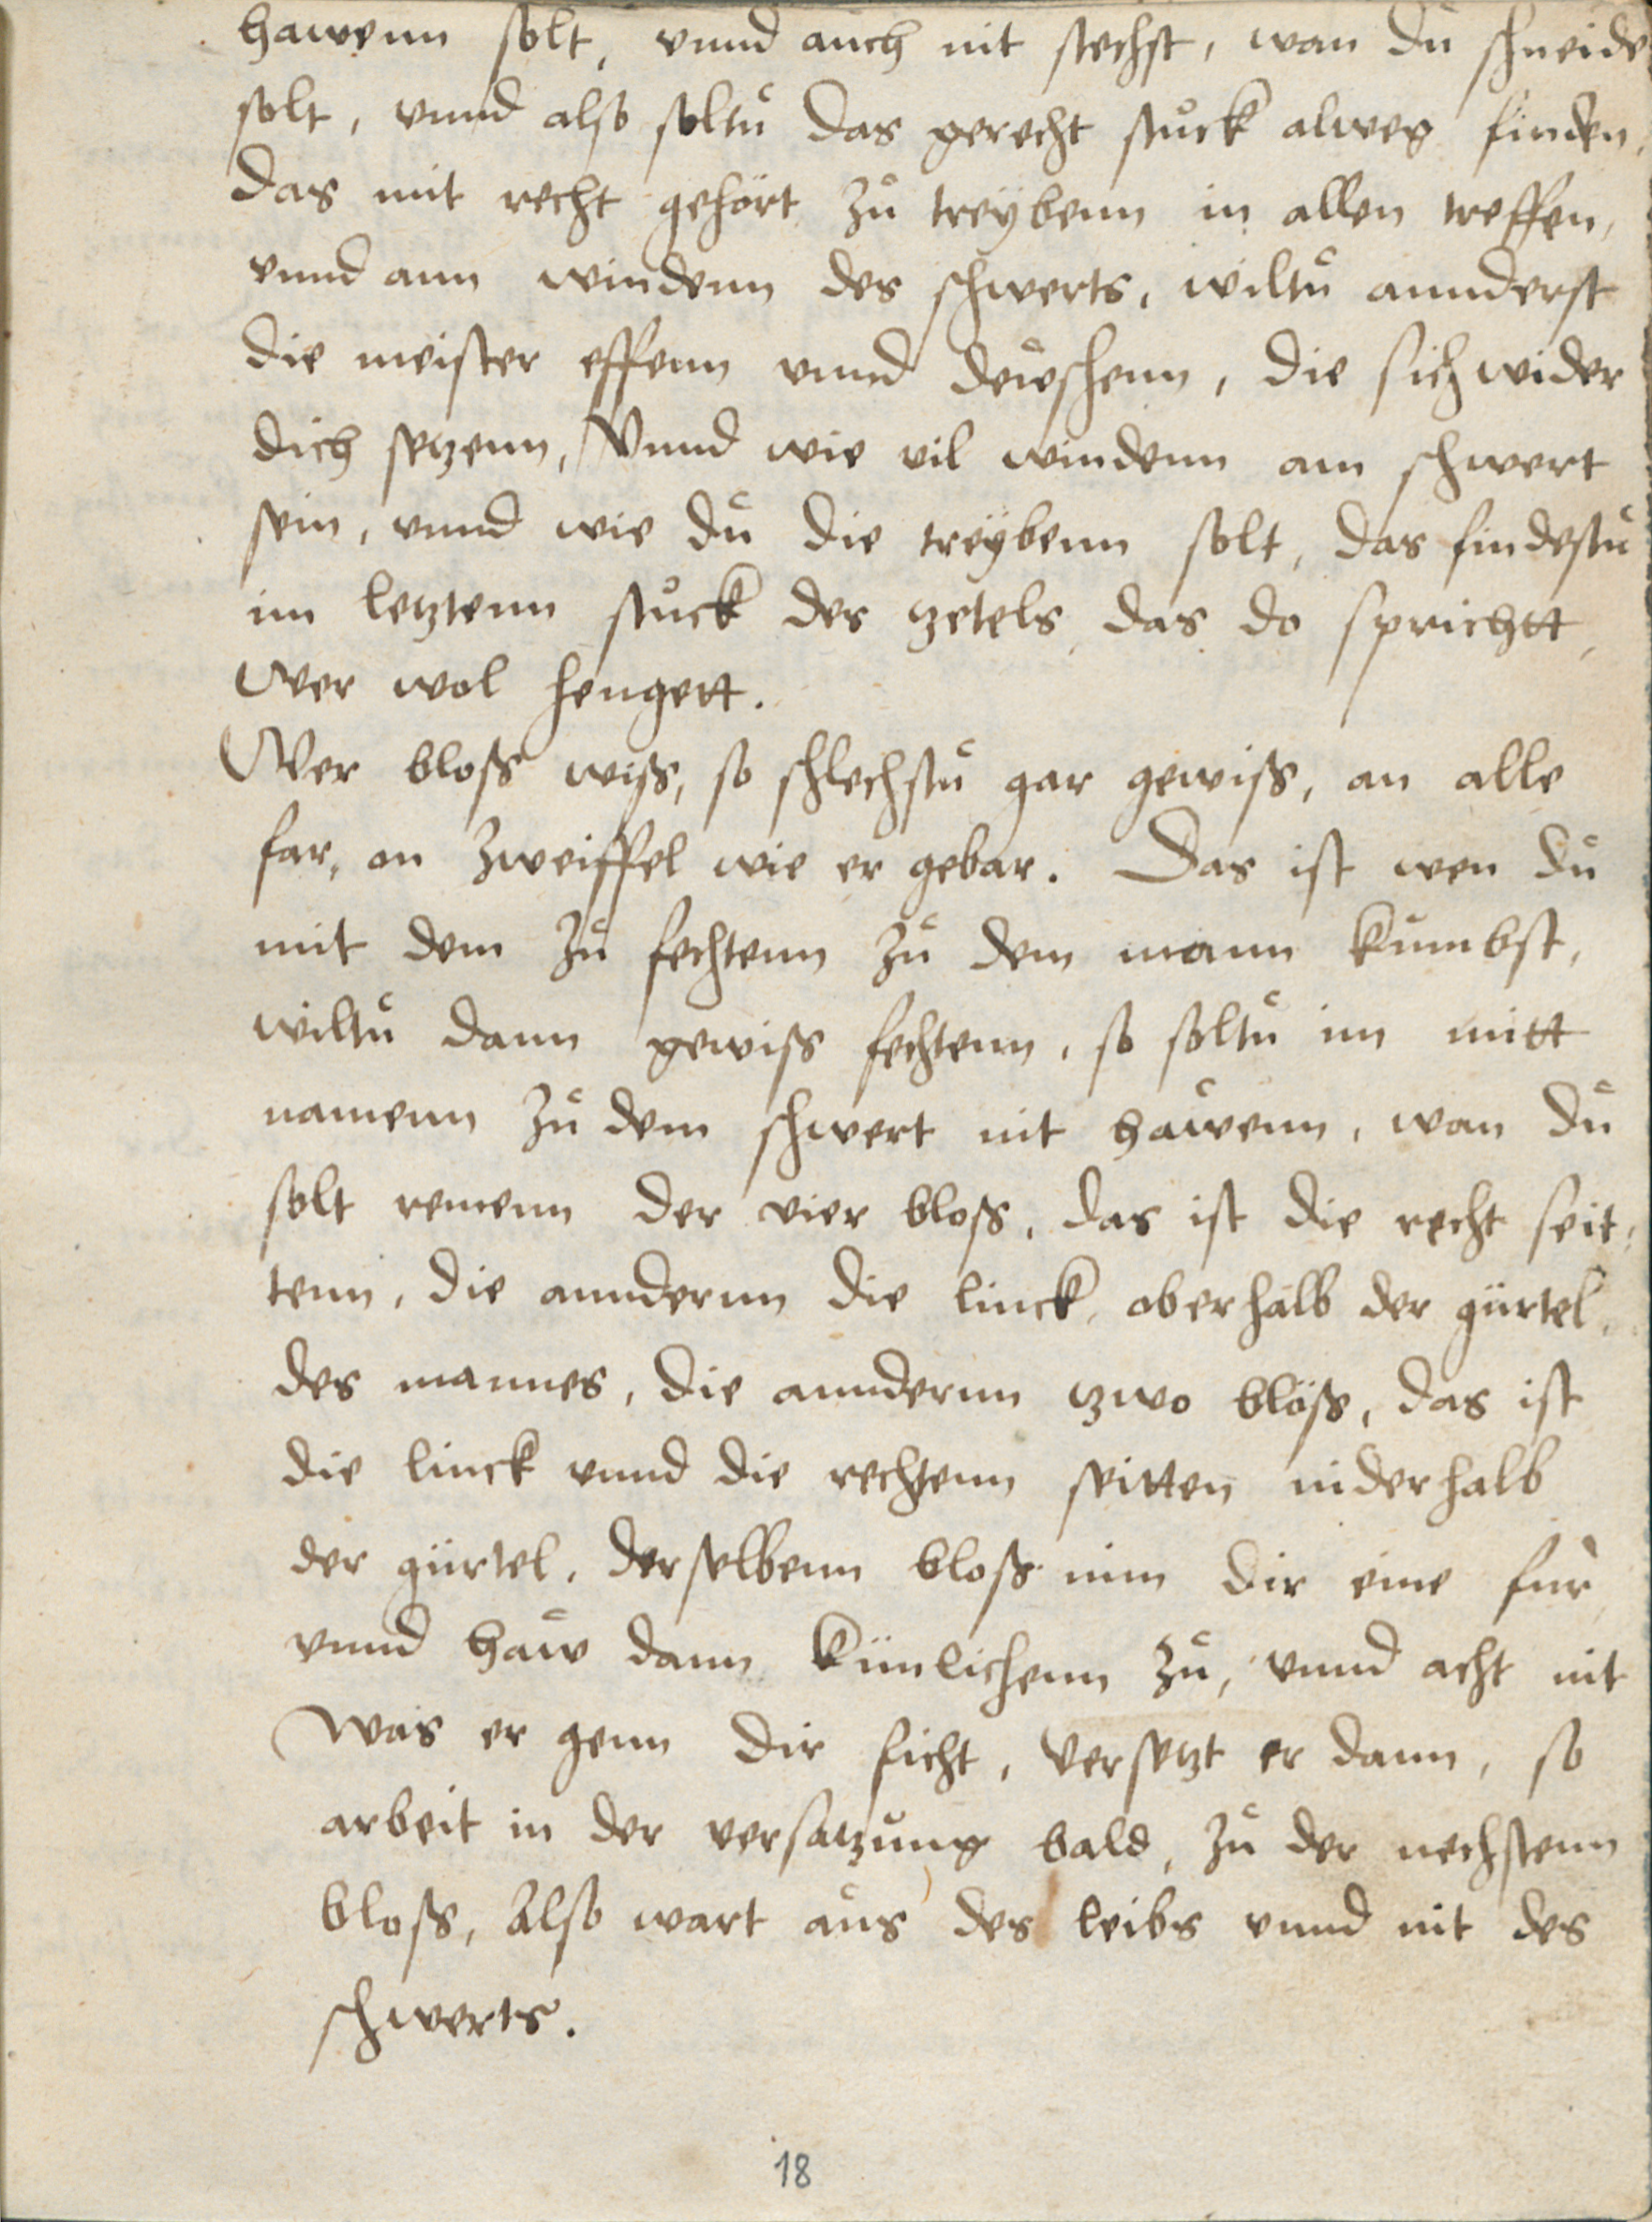 hawenn solt, vnnd auch nit stechst, wan du schneide
solt, vnnd also soltů das gerecht stuck alweg finden,
das mit recht gehört zů treÿbenn in allen treffen,
vnnd ann windenn des schwerts, wiltů annderst
die meister effenn vnnd dewschenn, die sich wider
dich setzenn, Vnnd wie vil windenn am schwert
sein, vnnd wie dů die treÿbenn solt, das findestů
im letztenn stuck des tzetels das do sprichtt,
Wer wol hengett.
Wer bloss wiss, so schlechstů gar gewiss, an alle
far, on zweiffel wie er gebar. Das ist wen dů
mit dem zů fechtenn zů dem mann kumbst,
wiltů dann gewiss fechtenn, so soltů im mitt
namenn zů dem schwert nit hawenn, wan dů
solt remenn der vier bloss, das ist die recht seit:
tenn, die annderenn die linck, oberhalb der gürtel,
des mannes, die annderenn tzwo blöss, das ist
die linck vnnd die rechtenn seitten niderhalb
der gürtel, derselbenn bloss nim dir eine für
vnnd haw dann künlichenn zů, vnnd acht nit
was er genn dir ficht, versetzt er dann, so
arbeit in der versatzung bald, zů der nechstenn
bloss, Also wart aus des leibs vnnd nit des
schwerts.
18